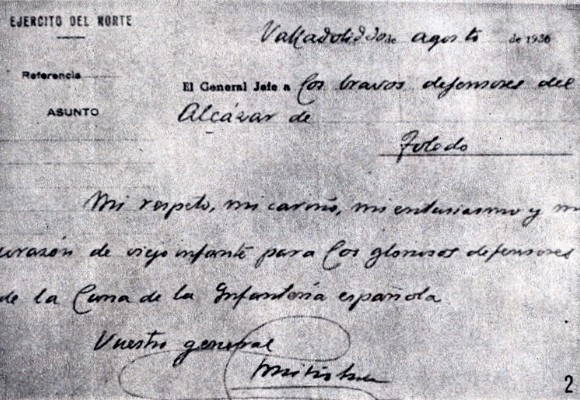 EJERCITO DEL NORTE
Valladolid de agosto de 1936
Referencia
El General Jefe a Los bravos defensores del
ASUNTO
Alcázar de
Toledo
Mi respeto, mi cariño, mi entusiasmo y mi
corazón de viejo infante para los gloriosos defensores
de la Cuna de la Infantería española
Vuestro general
2